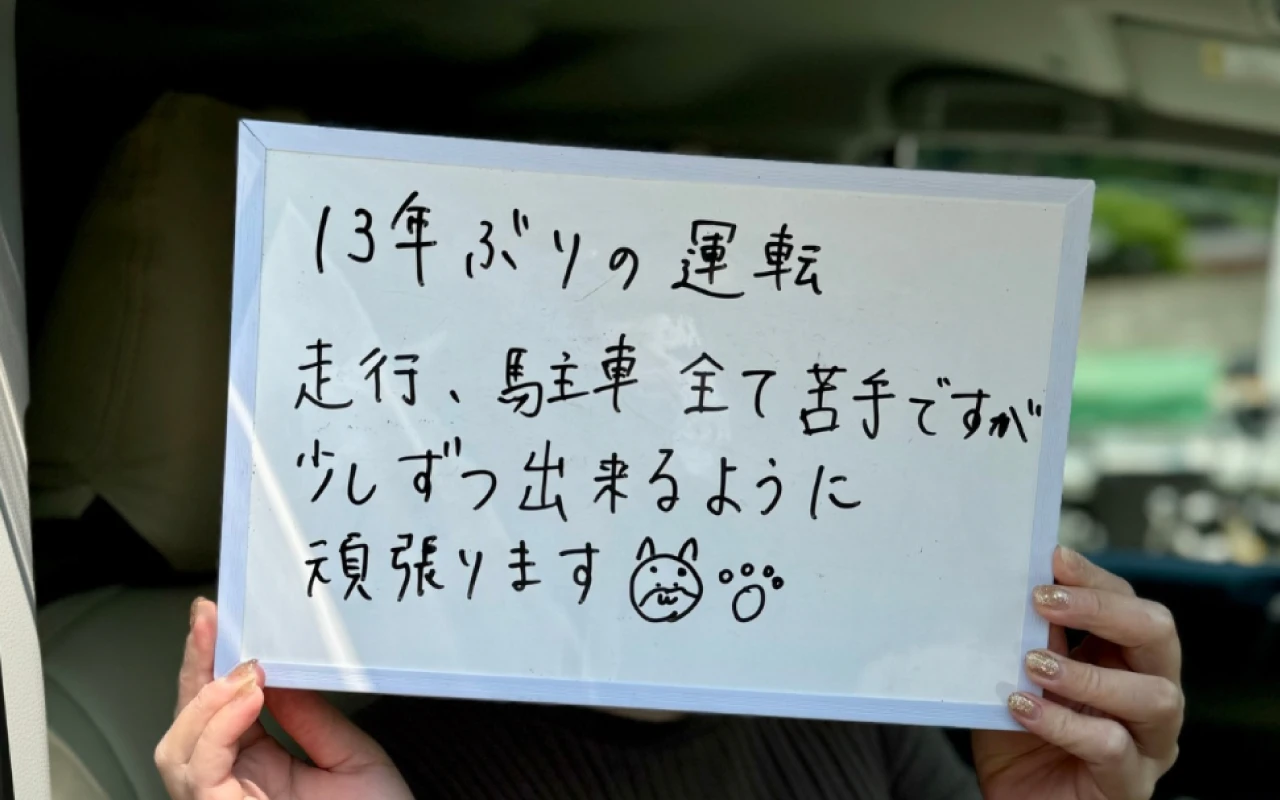 13年ぶりの運転
走行、駐車 全て苦手ですが
少しずつ出来るように
頑張ります